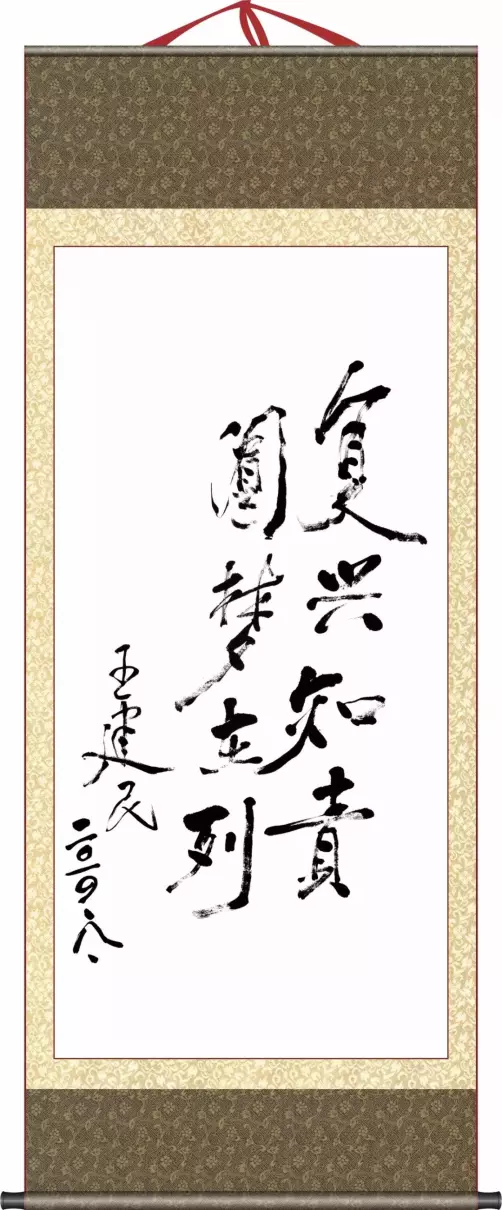 复兴知责
圆梦在列
王建民
二〇一九.八.